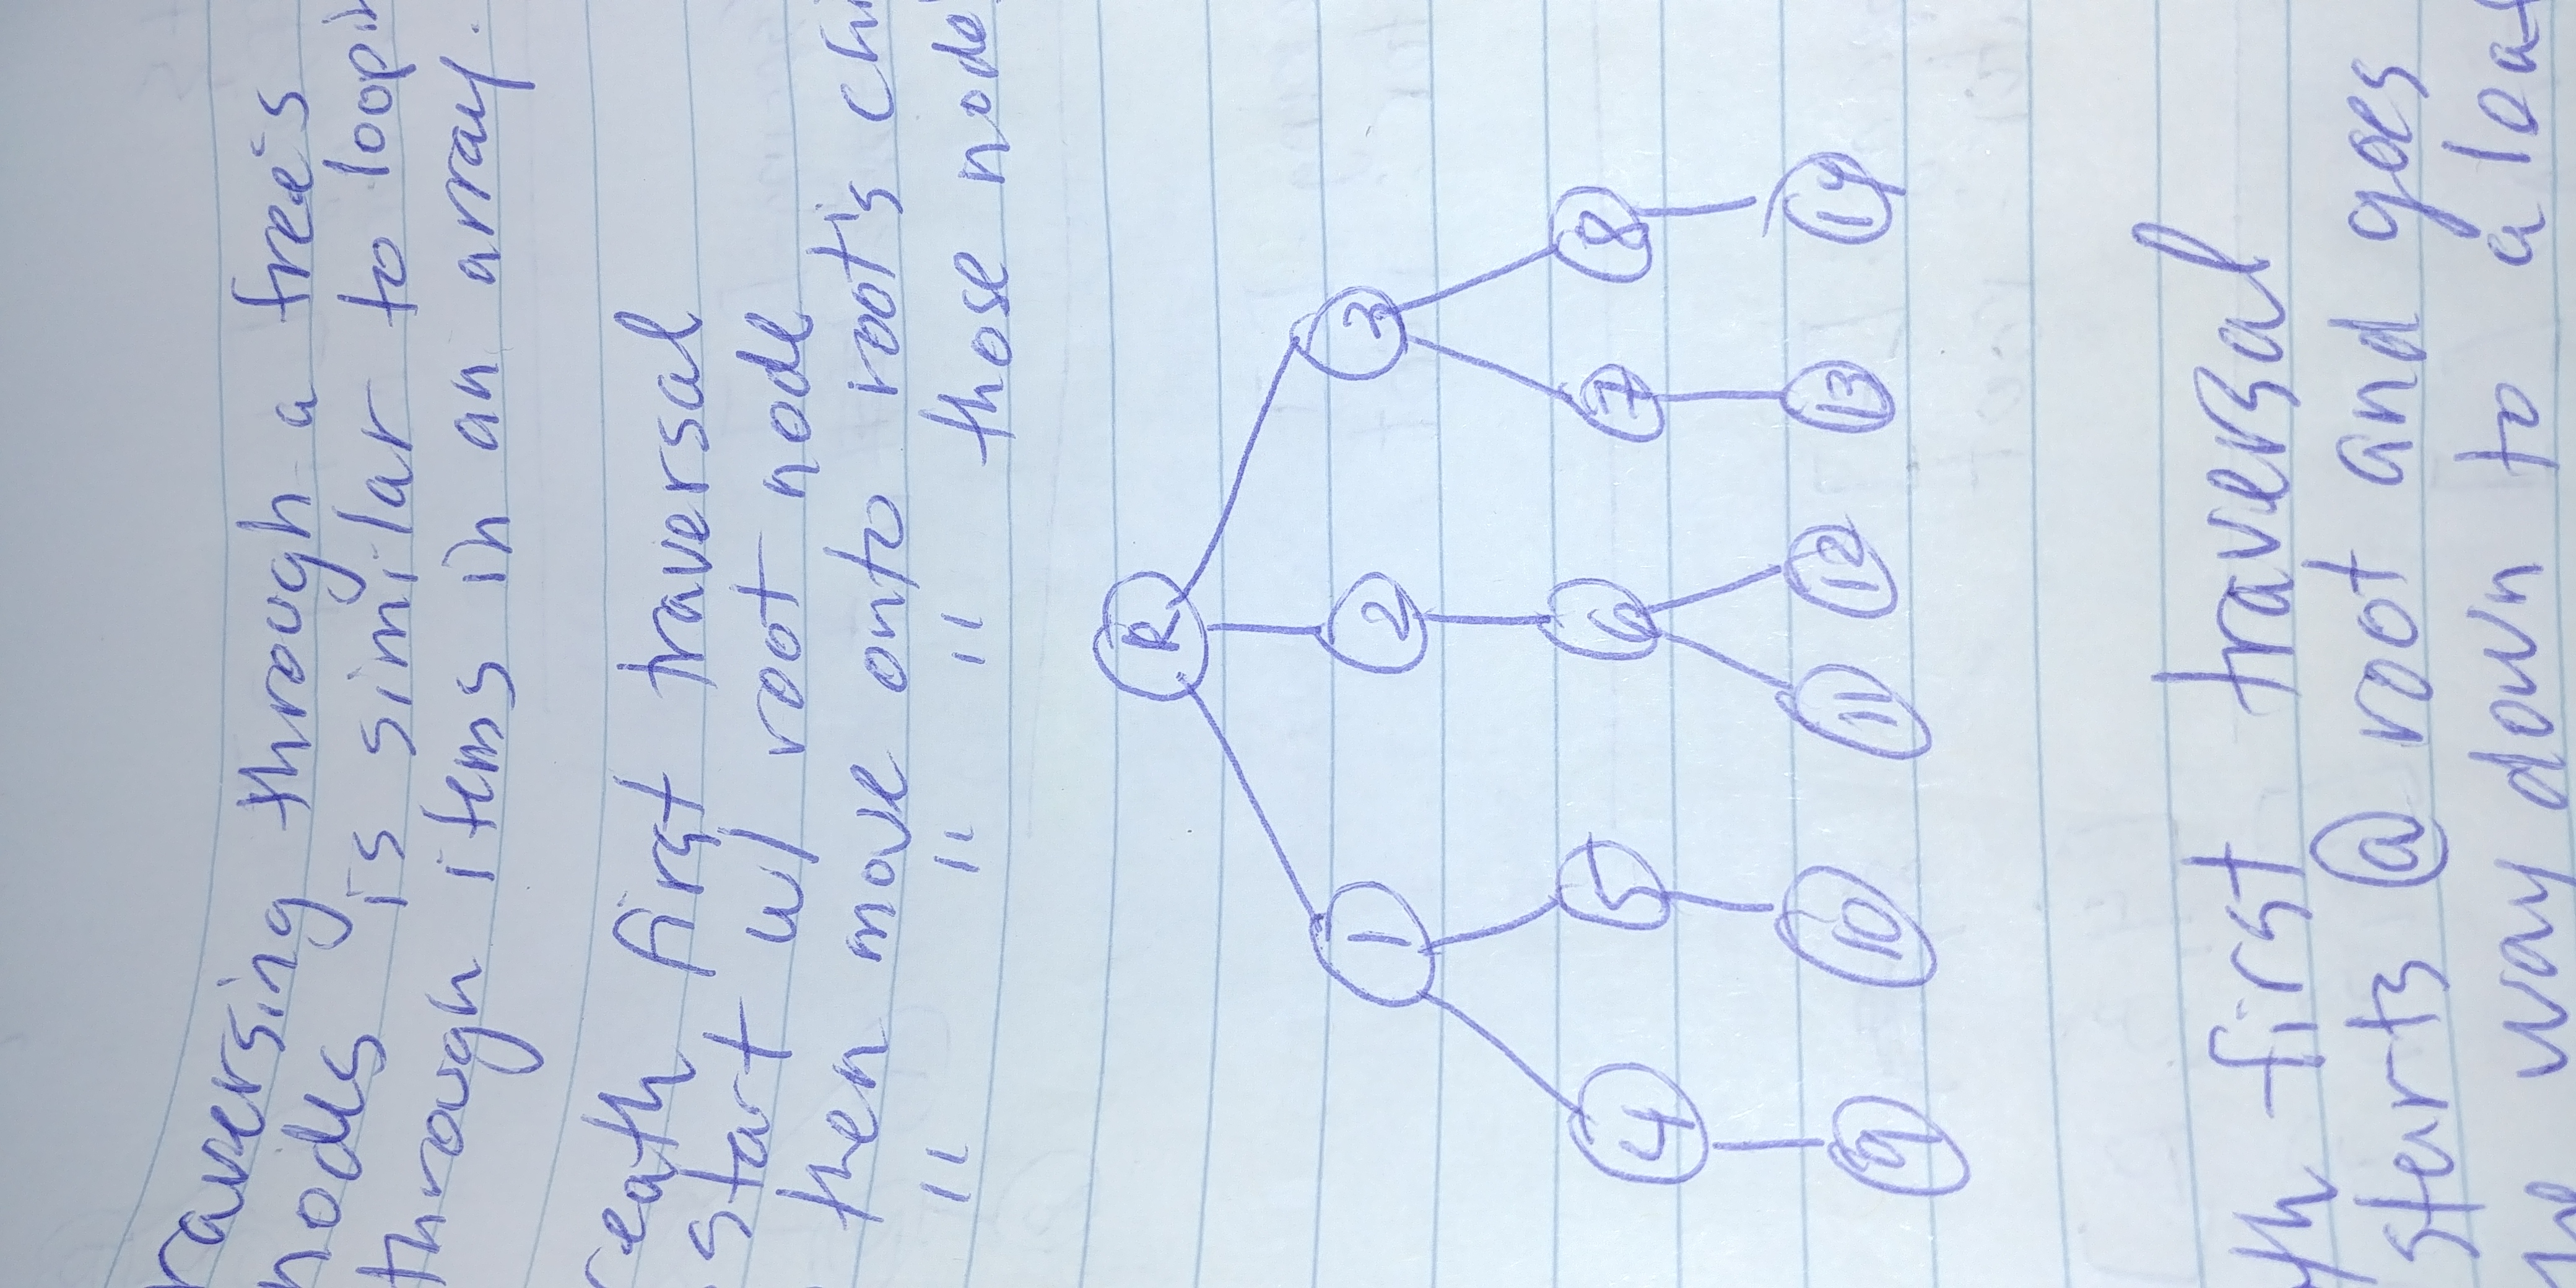 raversing through a tree's
nodes is similar to loopin
through items in an array.
reath first traversal
start w/ root node
then move onto root's chi
" " " those node
R
1 2 3
4 5 6 7 8
9 10 11 12 13 14
th first traversal
starts @ root and goes
way down to a leaf